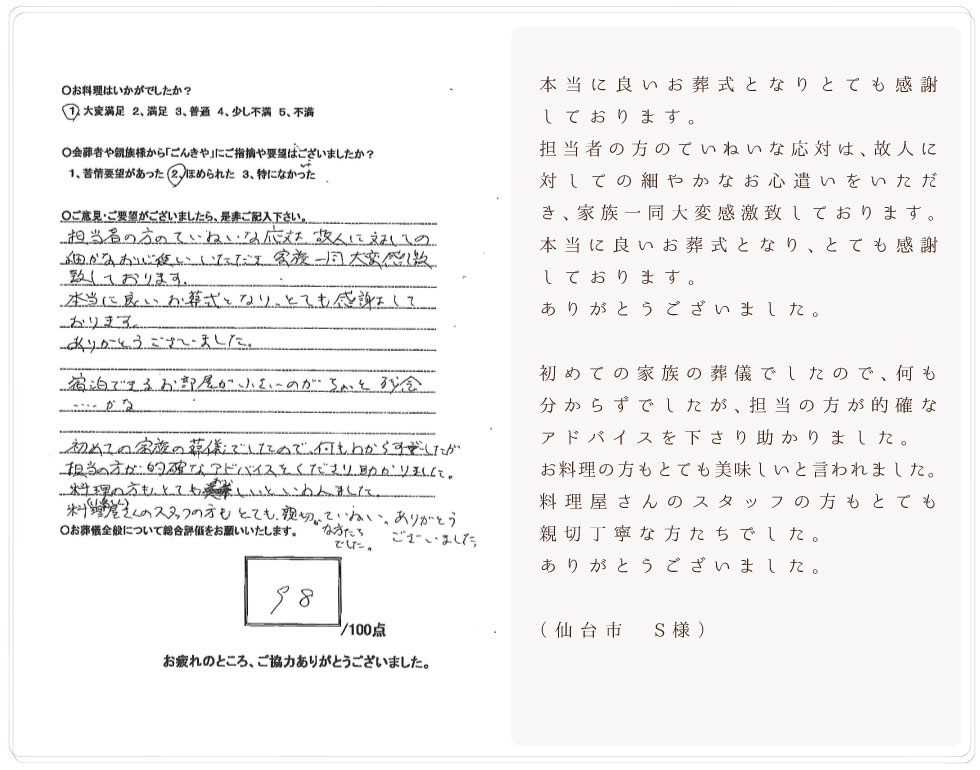 ○お料理はいかがでしたか？
1、大変満足 2、満足 3、普通 4、少し不満 5、不満
○会葬者や親族様から「ごんきや」にご指摘や要望はございましたか？
1、苦情要望があった 2、ほめられた 3、特になかった
○ご意見・ご要望がございましたら、是非ご記入下さい。
担当者の方のていねいな応対 故人に対しての
細かなお心遣いいただき 家族一同大変感激
致しております。
本当に良いお葬式となり、とても感謝して
おります。
ありがとうございました。
宿泊できるお部屋が小さいのがちょっと残念
……かな
初めての家族の葬儀でしたので、何もわからずでしたが
担当の方が的確なアドバイスをくださり、助かりました。
料理の方もとても美味しいといわれました。
料理屋さんのスタッフの方もとても、親切、ていねい、ありがとう
な方たち ございました。
でした。
○お葬儀全般について総合評価をお願いいたします。
98
/100点
お疲れのところ、ご協力ありがとうございました。
本当に良いお葬式となりとても感謝
しております。
担当者の方のていねいな応対は、故人に
対しての細やかなお心遣いをいただ
き、家族一同大変感激致しております。
本当に良いお葬式となり、とても感謝
しております。
ありがとうございました。
初めての家族の葬儀でしたので、何も
分からずでしたが、担当の方が的確な
アドバイスを下さり助かりました。
お料理の方もとても美味しいと言われました。
料理屋さんのスタッフの方もとても
親切丁寧な方たちでした。
ありがとうございました。
(仙台市 S様)